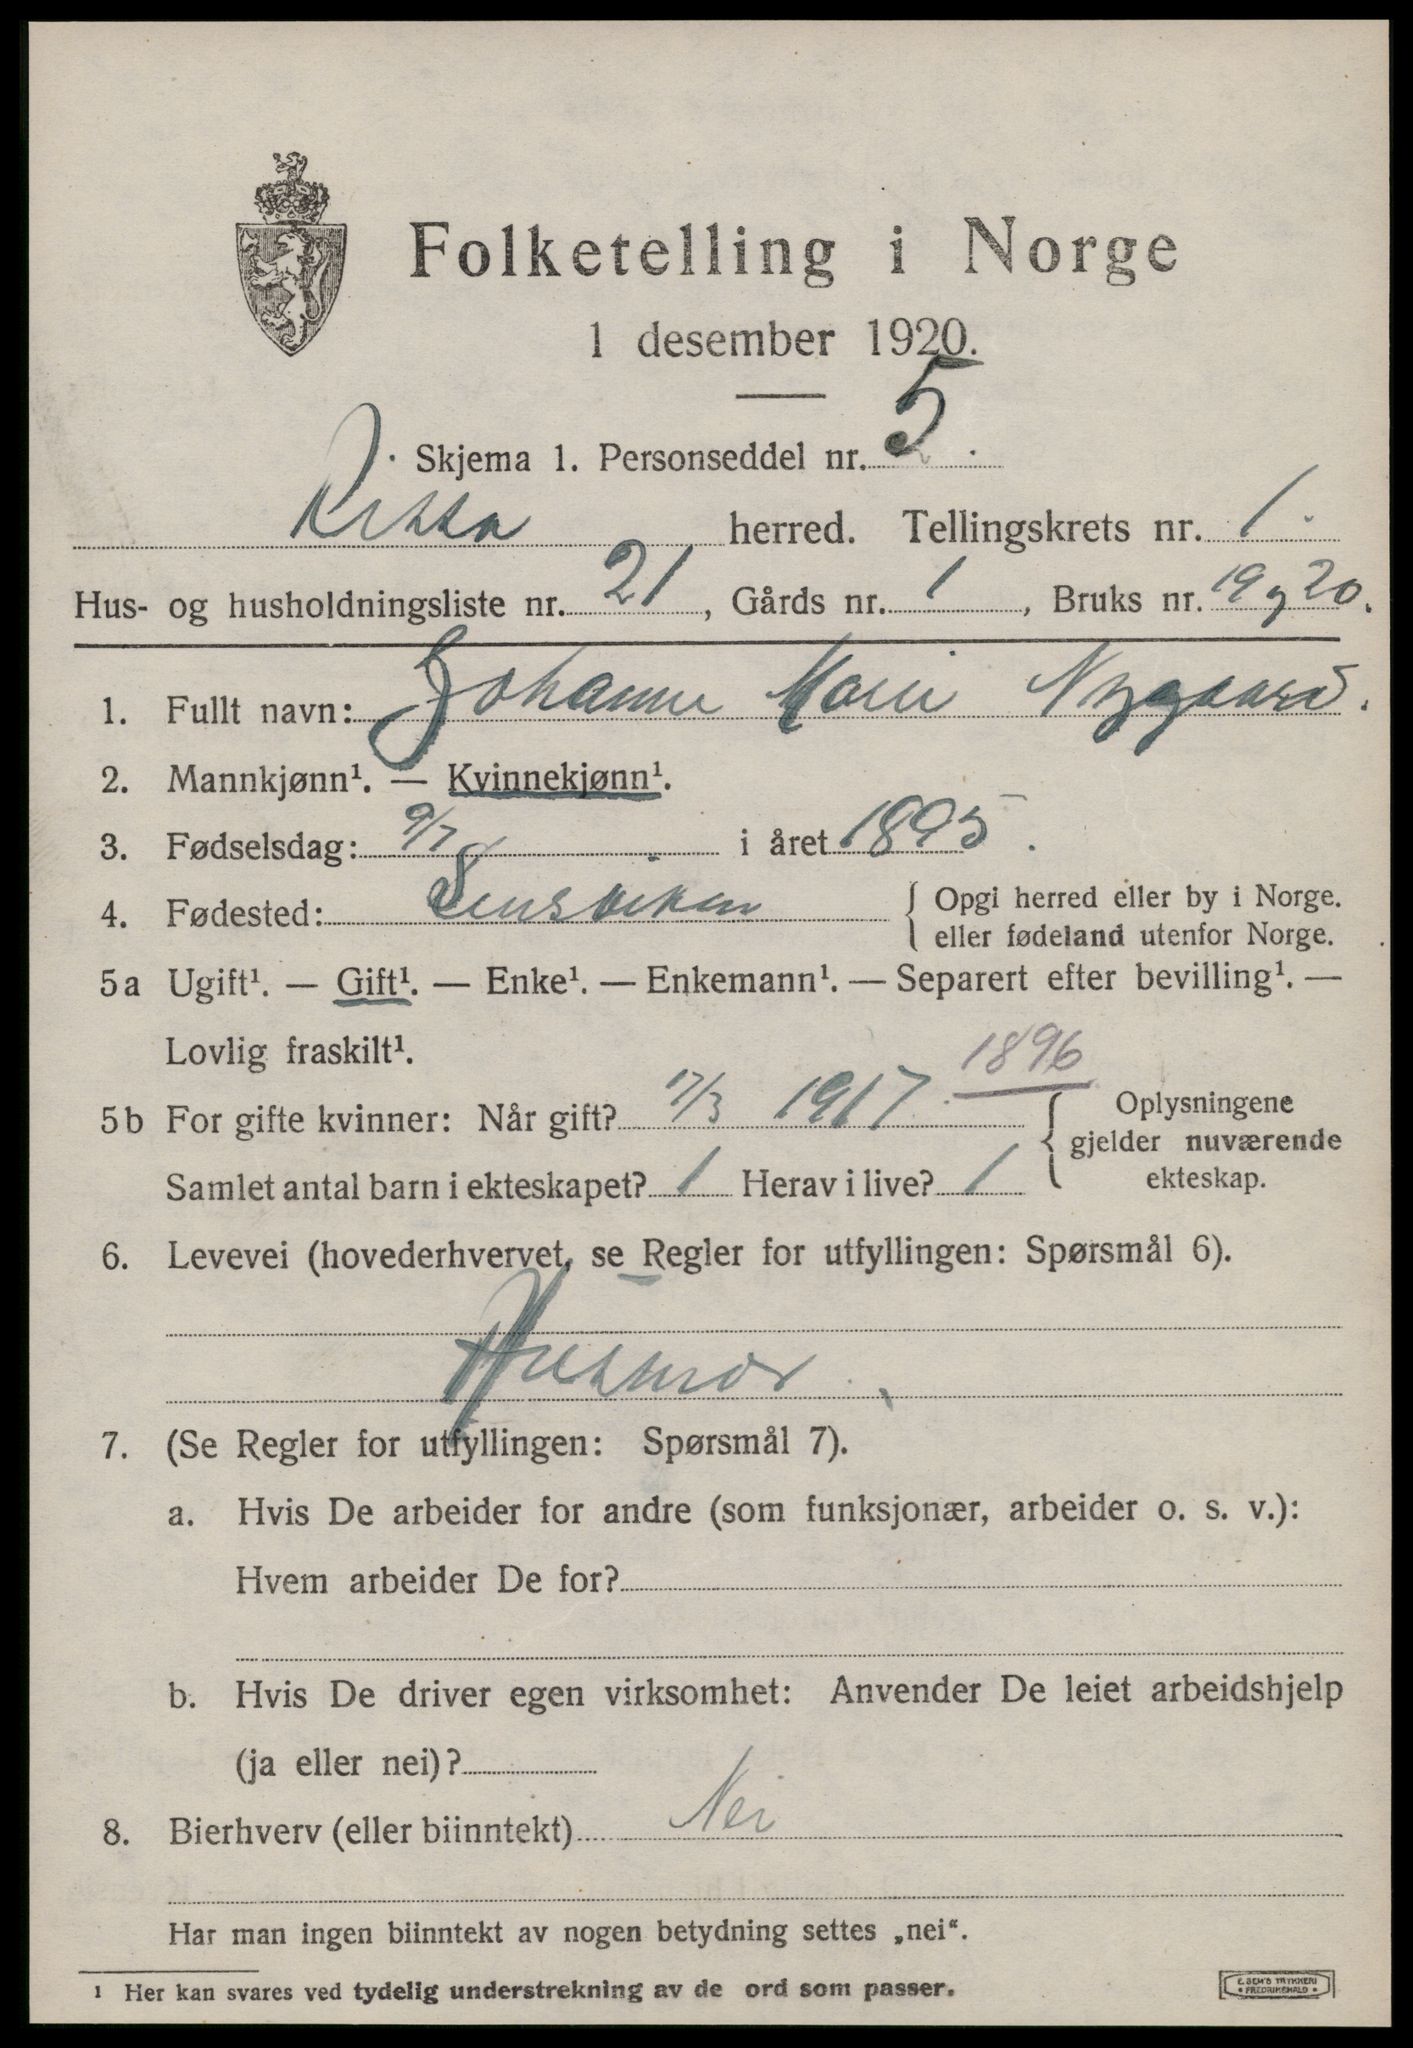 Folketelling i Norge
1 desember 1920.
Skjema 1. Personseddel nr. 5.
Rissa herred. Tellingskrets nr. 1.
Hus- og husholdningsliste nr. 21, Gårds nr. 1, Bruks nr. 19 og 20.
1. Fullt navn: Johanne Marie Nygaard.
2. Mannkjønn¹. — Kvinnekjønn¹.
3. Fødselsdag: 9/7 i året 1895.
4. Fødested: Lensviken { Opgi herred eller by i Norge.
eller fødeland utenfor Norge.
5a Ugift¹. — Gift¹. — Enke¹. — Enkemann¹. — Separert efter bevilling¹. —
Lovlig fraskilt¹.
1896
5b For gifte kvinner: Når gift? 17/3 1917. { Oplysningene
gjelder nuværende
Samlet antal barn i ekteskapet? 1 Herav i live? 1 ekteskap.
6. Levevei (hovederhvervet, se Regler for utfyllingen: Spørsmål 6).
Husmor.
7. (Se Regler for utfyllingen: Spørsmål 7).
a. Hvis De arbeider for andre (som funksjonær, arbeider o. s. v.):
Hvem arbeider De for?
b. Hvis De driver egen virksomhet: Anvender De leiet arbeidshjelp
(ja eller nei)?
8. Bierhverv (eller biinntekt) Nei
Har man ingen biinntekt av nogen betydning settes „nei“.
¹ Her kan svares ved tydelig understrekning av de ord som passer.
E. SEM'S TRYKKERI
FREDRIKSHALD